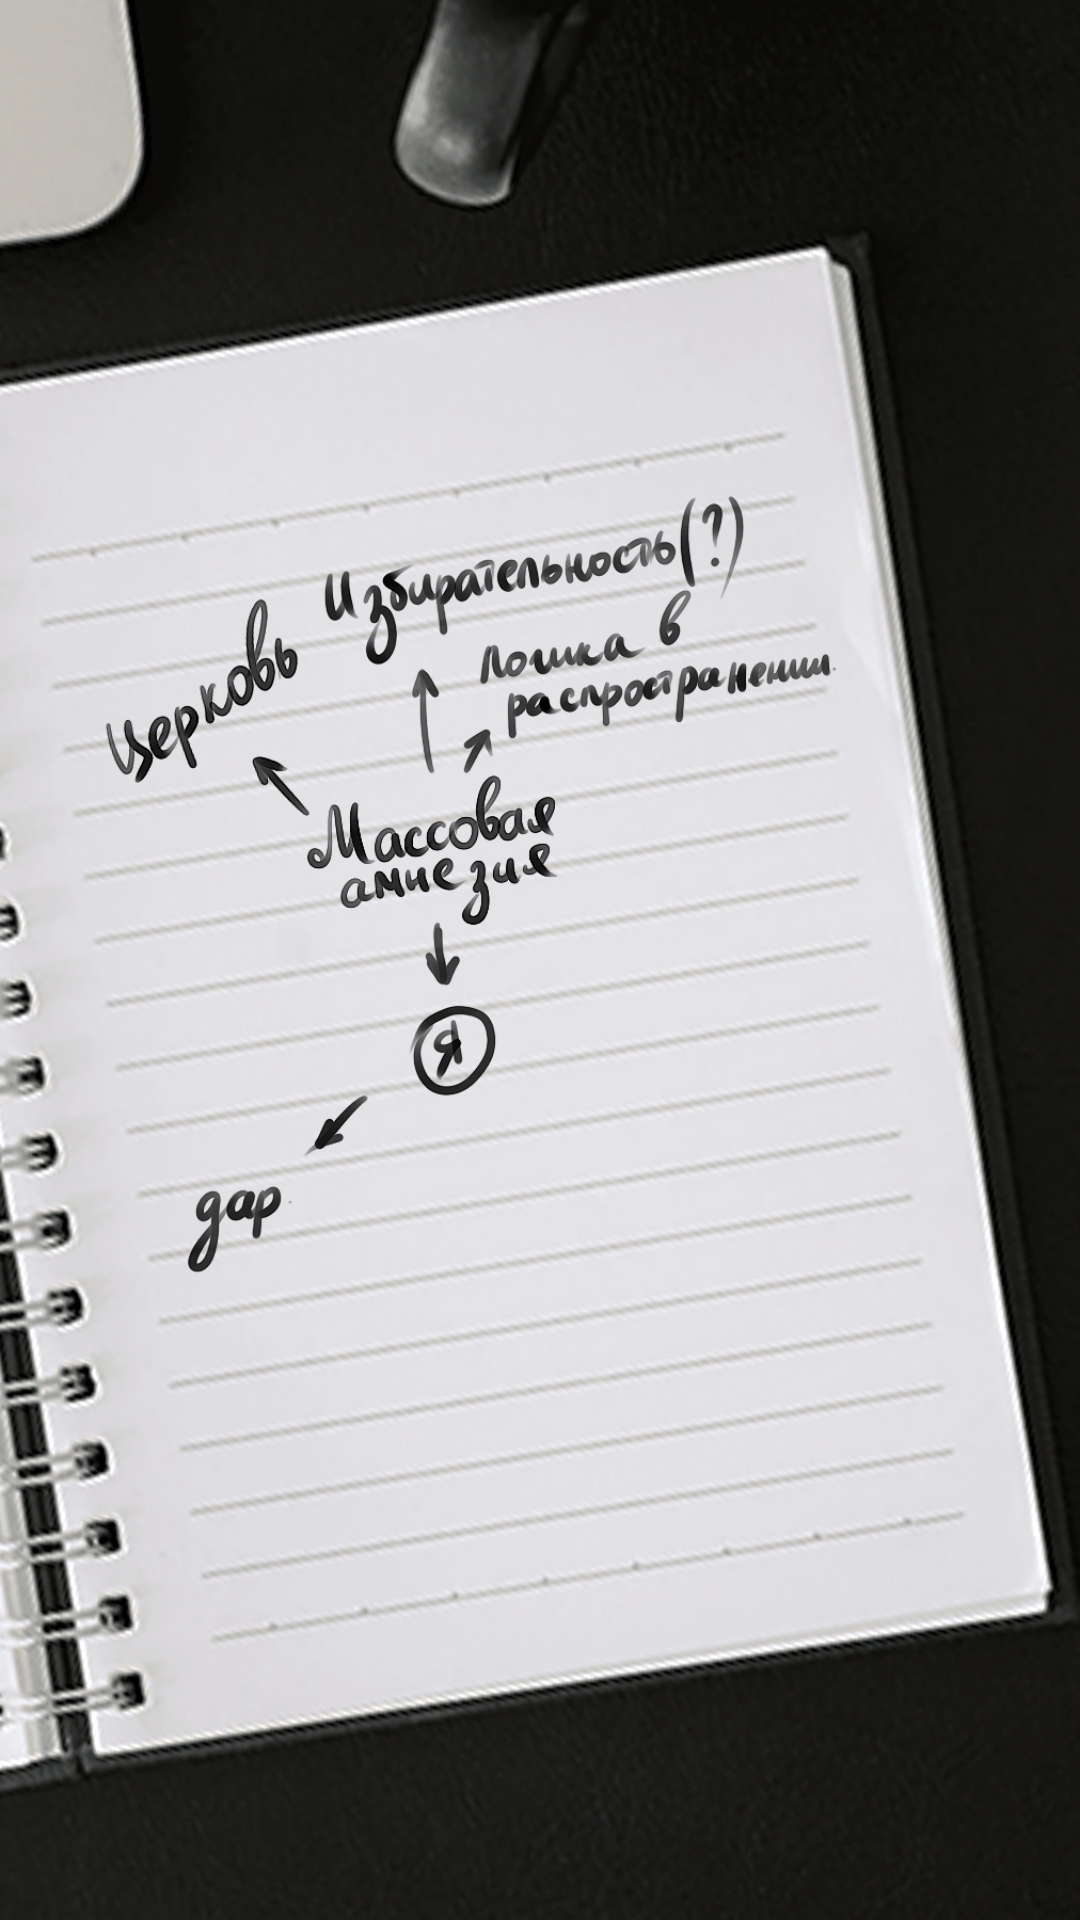 Избирательность(?)
Церковь
Логика в
распространении.
Массовая
амнезия
Я
дар